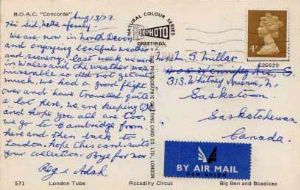 B.O.A.C. "Concorde"
Aug 13/77
NATURAL COLOUR SERIES
PHOTO
GREETINGS
4P
Hi Sid, family
We are now in North Devon
and enjoying beautiful weather
and scenery. last week we were
in Wales and the weather was
miserable so did not get
much, we had a good flight
over and have travelled quite
a lot here, we are keeping O.K.
and hope you all are too.
we go to Cambridge from
here and then back to
London. hope this card suits
your collection. Bye for now
Reg & Adah.
S. Millar
Saskatoon
Saskatchewan
Canada.
BY AIR MAIL
PAR AVION
571
London Tube
Piccadilly Circus
Big Ben and Boadicea